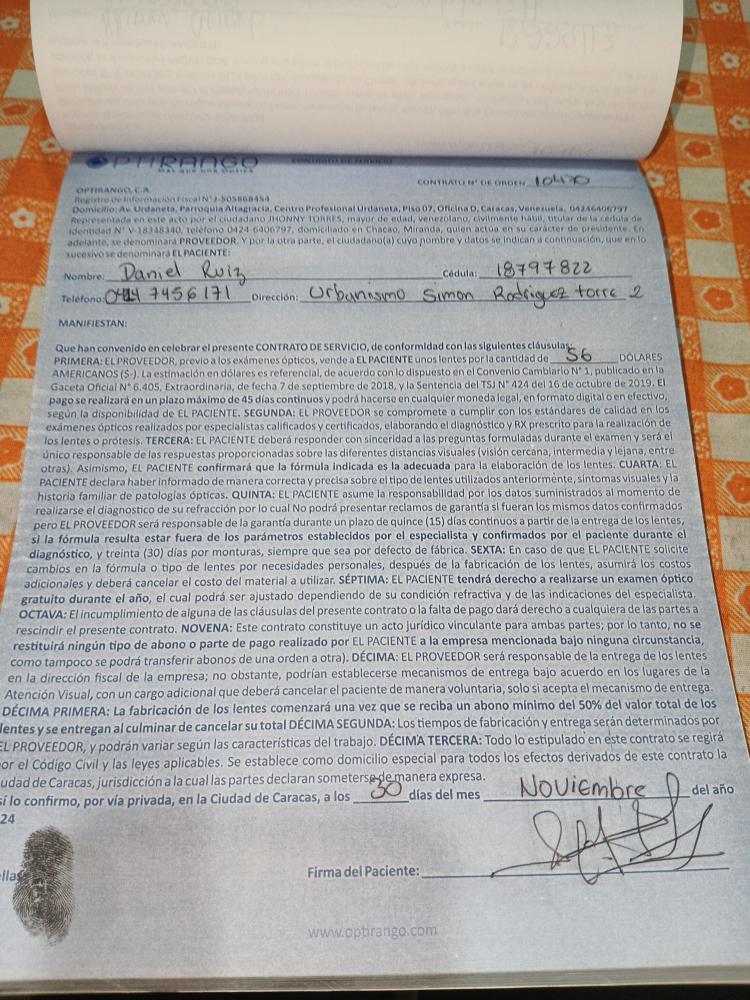 OPTIRANGO
MAS QUE UNA ÓPTICA
CONTRATO DE SERVICIO
CONTRATO N° DE ORDEN 10470
OPTIRANGO, C.A.
Registro de Información Fiscal N°J-505868454
Domicilio: Av. Urdaneta, Parroquia Altagracia, Centro Profesional Urdaneta, Piso 07, Oficina D, Caracas, Venezuela. 04246406797
Representada en este acto por el ciudadano JHONNY TORRES, mayor de edad, venezolano, civilmente hábil, titular de la cédula de
identidad N° V-18348340, teléfono 0424-6406797, domiciliado en Chacao, Miranda, quien actúa en su carácter de presidente. En
adelante, se denominará PROVEEDOR. Y por la otra parte, el ciudadano(a) cuyo nombre y datos se indican a continuación, que en lo
sucesivo se denominará EL PACIENTE:
Nombre: Daniel Ruiz Cédula: 18797822
Teléfono: 7456171 Dirección: Urbanismo Simon Rodriguez torre 2
MANIFIESTAN:
Que han convenido en celebrar el presente CONTRATO DE SERVICIO, de conformidad con las siguientes cláusulas:
PRIMERA: EL PROVEEDOR, previo a los exámenes ópticos, vende a EL PACIENTE unos lentes por la cantidad de 56 DÓLARES
AMERICANOS ($-). La estimación en dólares es referencial, de acuerdo con lo dispuesto en el Convenio Cambiario N° 1, publicado en la
Gaceta Oficial N° 6.405, Extraordinaria, de fecha 7 de septiembre de 2018, y la Sentencia del TSJ N° 424 del 16 de octubre de 2019. El
pago se realizará en un plazo máximo de 45 días continuos y podrá hacerse en cualquier moneda legal, en formato digital o en efectivo,
según la disponibilidad de EL PACIENTE. SEGUNDA: EL PROVEEDOR se compromete a cumplir con los estándares de calidad en los
exámenes ópticos realizados por especialistas calificados y certificados, elaborando el diagnóstico y RX prescrito para la realización de
los lentes o prótesis. TERCERA: EL PACIENTE deberá responder con sinceridad a las preguntas formuladas durante el examen y será el
único responsable de las respuestas proporcionadas sobre las diferentes distancias visuales (visión cercana, intermedia y lejana, entre
otras). Asimismo, EL PACIENTE confirmará que la fórmula indicada es la adecuada para la elaboración de los lentes. CUARTA: EL
PACIENTE declara haber informado de manera correcta y precisa sobre el tipo de lentes utilizados anteriormente, síntomas visuales y la
historia familiar de patologías ópticas. QUINTA: EL PACIENTE asume la responsabilidad por los datos suministrados al momento de
realizarse el diagnostico de su refracción por lo cual No podrá presentar reclamos de garantía si fueran los mismos datos confirmados
pero EL PROVEEDOR será responsable de la garantía durante un plazo de quince (15) días continuos a partir de la entrega de los lentes,
si la fórmula resulta estar fuera de los parámetros establecidos por el especialista y confirmados por el paciente durante el
diagnóstico, y treinta (30) días por monturas, siempre que sea por defecto de fábrica. SEXTA: En caso de que EL PACIENTE solicite
cambios en la fórmula o tipo de lentes por necesidades personales, después de la fabricación de los lentes, asumirá los costos
adicionales y deberá cancelar el costo del material a utilizar. SÉPTIMA: EL PACIENTE tendrá derecho a realizarse un examen óptico
gratuito durante el año, el cual podrá ser ajustado dependiendo de su condición refractiva y de las indicaciones del especialista.
OCTAVA: El incumplimiento de alguna de las cláusulas del presente contrato o la falta de pago dará derecho a cualquiera de las partes a
rescindir el presente contrato. NOVENA: Este contrato constituye un acto jurídico vinculante para ambas partes; por lo tanto, no se
restituirá ningún tipo de abono o parte de pago realizado por EL PACIENTE a la empresa mencionada bajo ninguna circunstancia,
como tampoco se podrá transferir abonos de una orden a otra). DÉCIMA: EL PROVEEDOR será responsable de la entrega de los lentes
en la dirección fiscal de la empresa; no obstante, podrían establecerse mecanismos de entrega bajo acuerdo en los lugares de la
Atención Visual, con un cargo adicional que deberá cancelar el paciente de manera voluntaria, solo si acepta el mecanismo de entrega.
DÉCIMA PRIMERA: La fabricación de los lentes comenzará una vez que se reciba un abono mínimo del 50% del valor total de los
lentes y se entregan al culminar de cancelar su total DÉCIMA SEGUNDA: Los tiempos de fabricación y entrega serán determinados por
EL PROVEEDOR, y podrán variar según las características del trabajo. DÉCIMA TERCERA: Todo lo estipulado en este contrato se regirá
por el Código Civil y las leyes aplicables. Se establece como domicilio especial para todos los efectos derivados de este contrato la
udad de Caracas, jurisdicción a la cual las partes declaran someterse de manera expresa.
sí lo confirmo, por vía privada, en la Ciudad de Caracas, a los 30 días del mes Noviembre del año
24
ellas
Firma del Paciente:
www.optirango.com